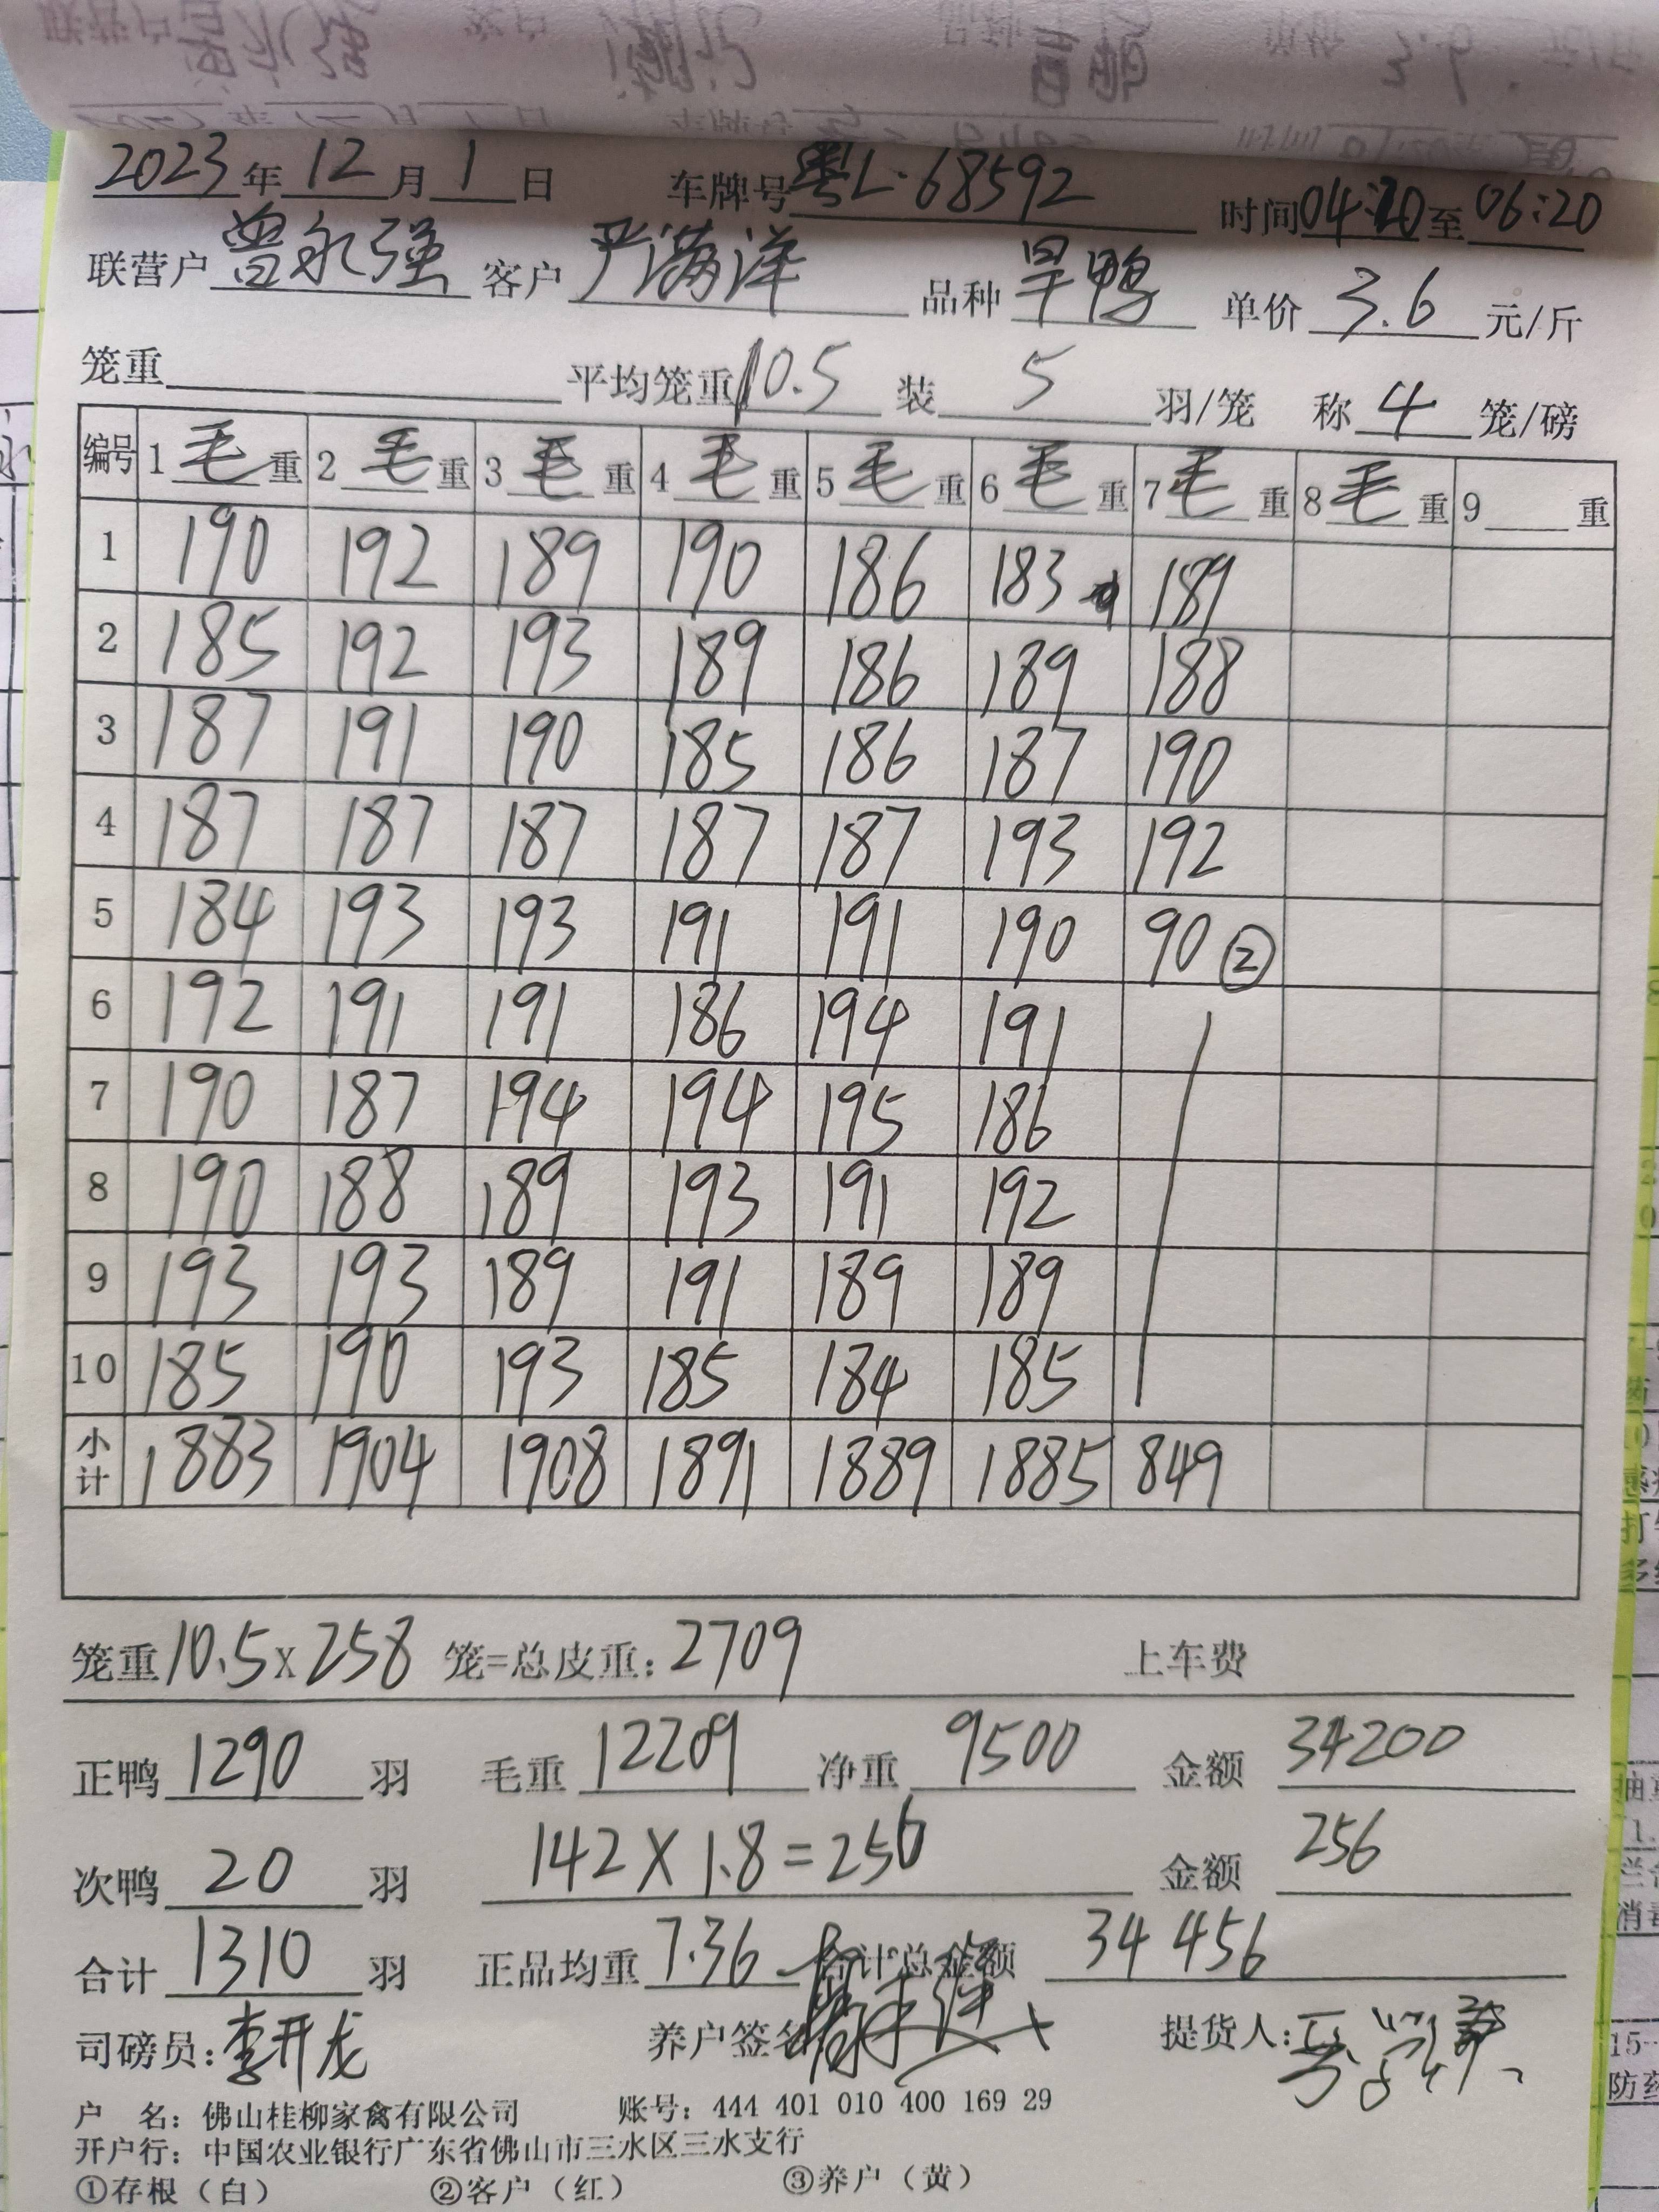 2023年12月1日 车牌号粤L·68592 时间04:20至06:20
联营户曾永强 客户严满洋 品种旱鸭 单价3.6元/斤
笼重 平均笼重10.5 装5羽/笼 称4笼/磅
编号 1毛重 2毛重 3毛重 4毛重 5毛重 6毛重 7毛重 8毛重 9重
1 190 192 189 190 186 183 189
2 185 192 193 189 186 189 188
3 187 191 190 185 186 187 190
4 187 187 187 187 187 193 192
5 184 193 193 191 191 190 90 ②
6 192 191 191 186 194 191
7 190 187 194 194 195 186
8 190 188 189 193 191 192
9 193 193 189 191 189 189
10 185 190 193 185 184 185
小计 1883 1904 1908 1891 1889 1885 849
笼重10.5X258笼=总皮重:2709 上车费
正鸭1290羽 毛重12209 净重9500 金额34200
次鸭20羽 142X1.8=256 金额256
合计1310羽 正品均重7.36 合计总金额34456
司磅员:李开龙 养户签名 提货人:
户 名: 佛山桂柳家禽有限公司 账号: 444 401 010 400 169 29
开户行: 中国农业银行广东省佛山市三水区三水支行
①存根（白） ②客户（红） ③养户（黄）